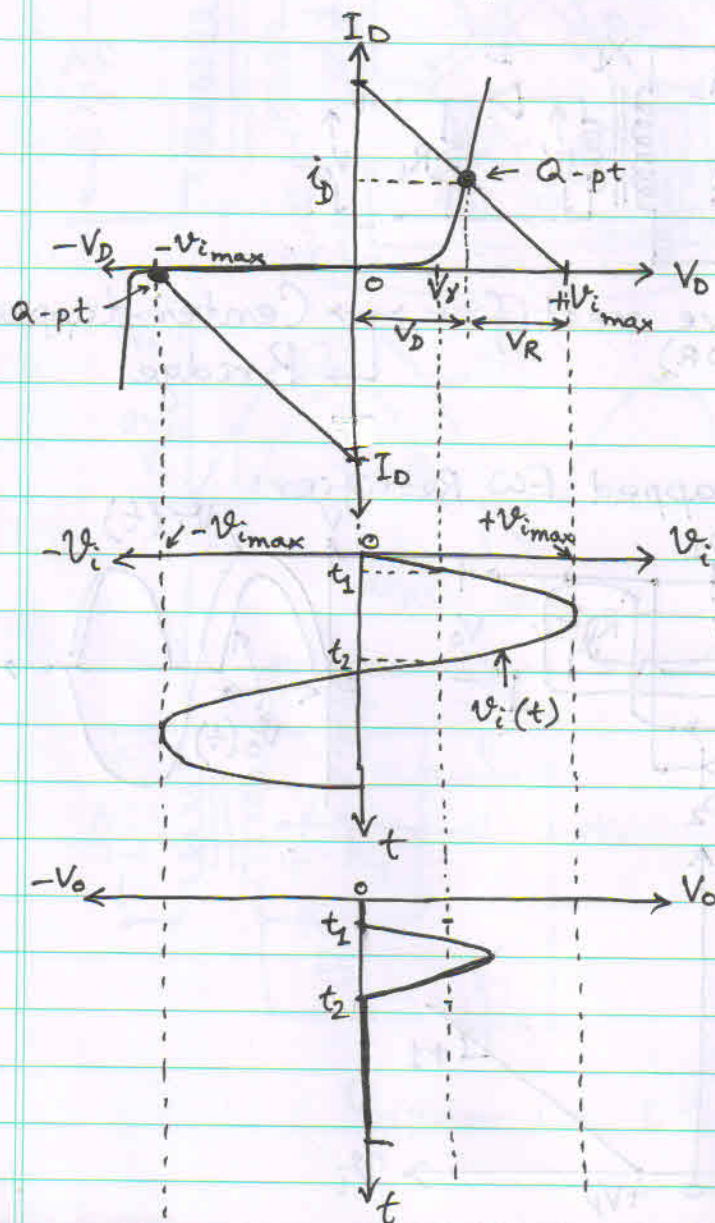 I_D
i_D
Q-pt
-V_D
-v_imax
Q-pt
0
V_γ
+v_imax
V_D
V_D
V_R
I_D
-V_i
-v_imax
0
+v_imax
V_i
t_1
t_2
v_i(t)
t
-V_o
0
V_o
t_1
t_2
t